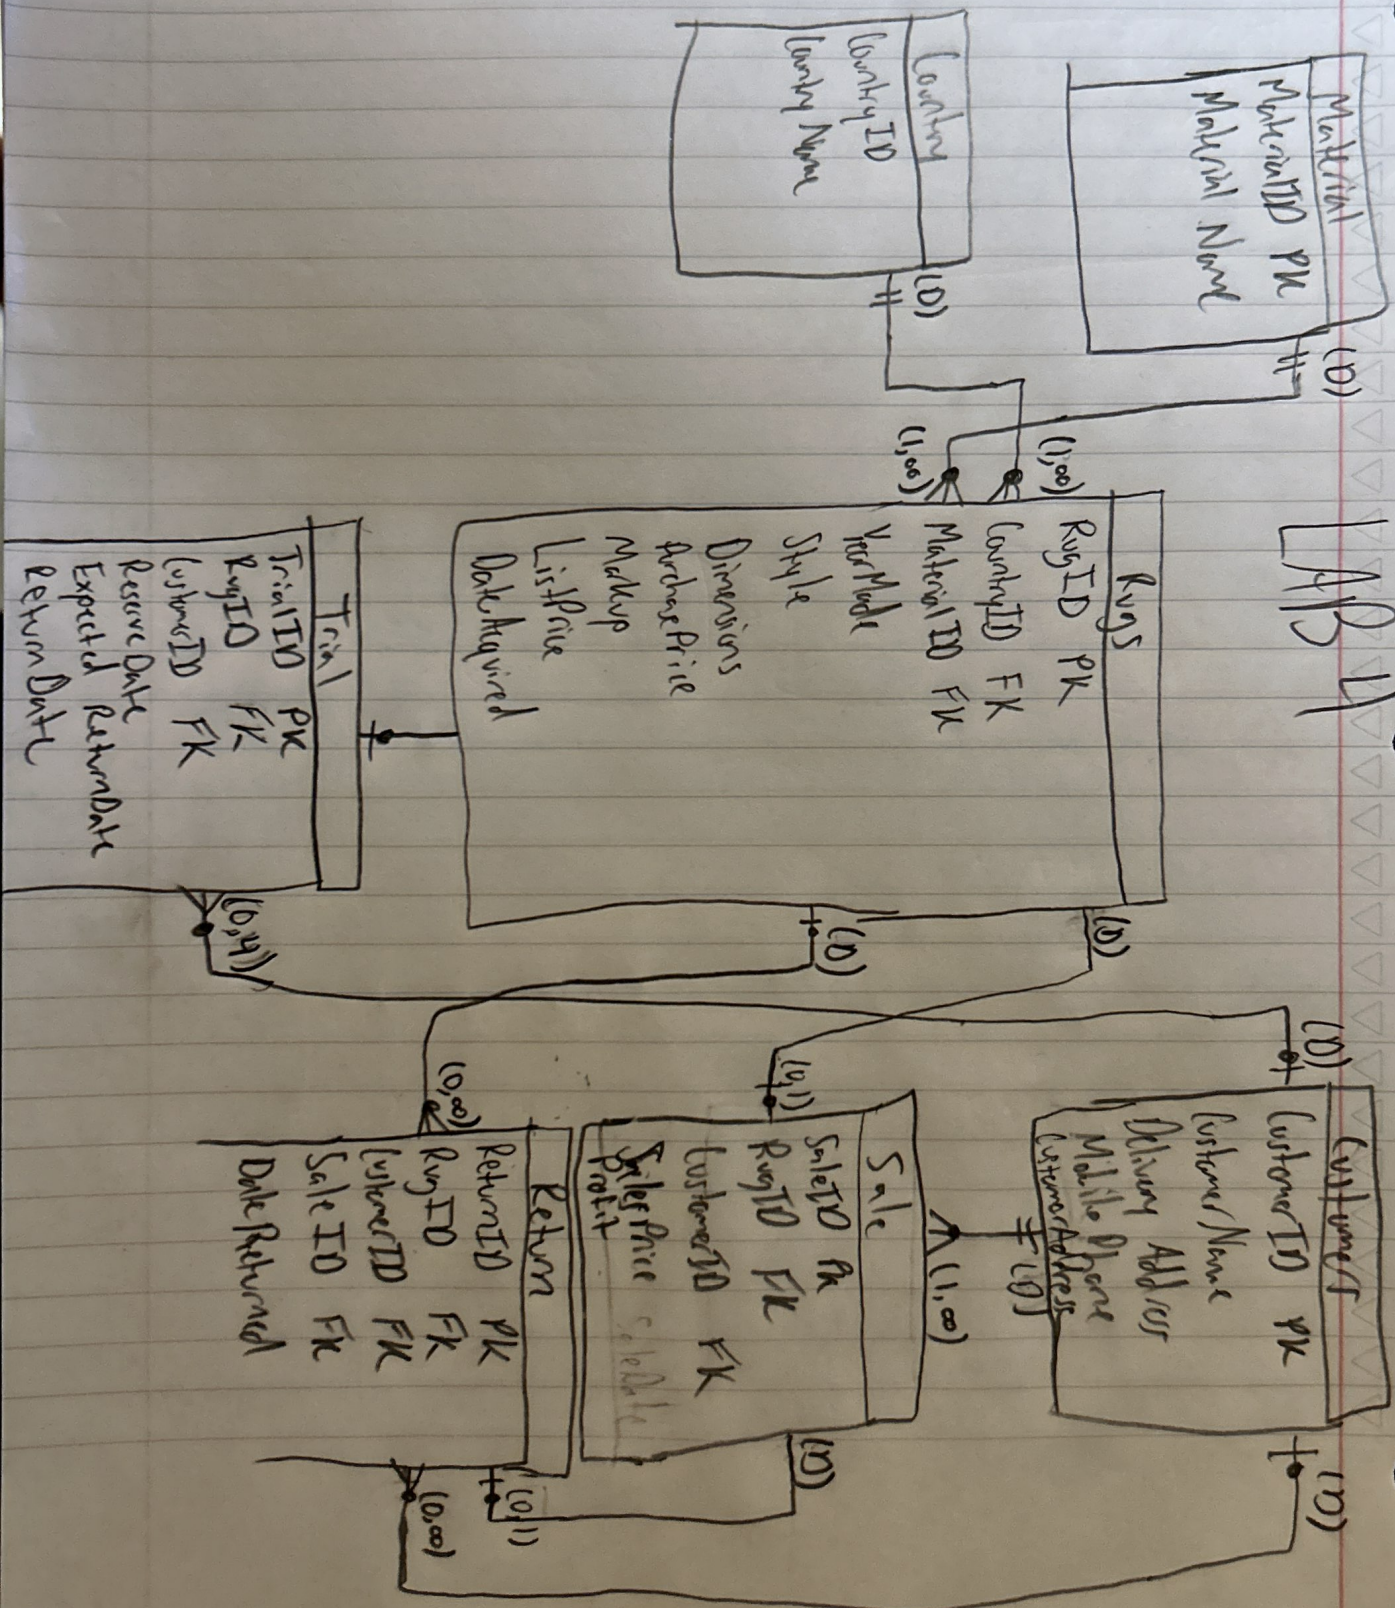 LAB 4
Material
MaterialID PK
Material Name
(1)
Country
CountryID
Country Name
(1)
(1,∞)
(1,∞)
Rugs
RugID PK
CountryID FK
MaterialID FK
YearMade
Style
Dimensions
PurchasePrice
Markup
ListPrice
DateAcquired
(1)
(1)
Trial
TrialID PK
RugID FK
CustomerID FK
ReserveDate
Expected ReturnDate
ReturnDate
(0,4)
(1)
Customers
CustomerID PK
CustomerName
Delivery Address
Mobile Phone
CustomerAddress
(1)
(1)
(1,∞)
(0,1)
Sale
SaleID PK
RugID FK
CustomerID FK
SalesPrice SaleDate
Profit
(1)
(0,∞)
Return
ReturnID PK
RugID FK
CustomerID FK
SaleID FK
DateReturned
(0,1)
(0,∞)